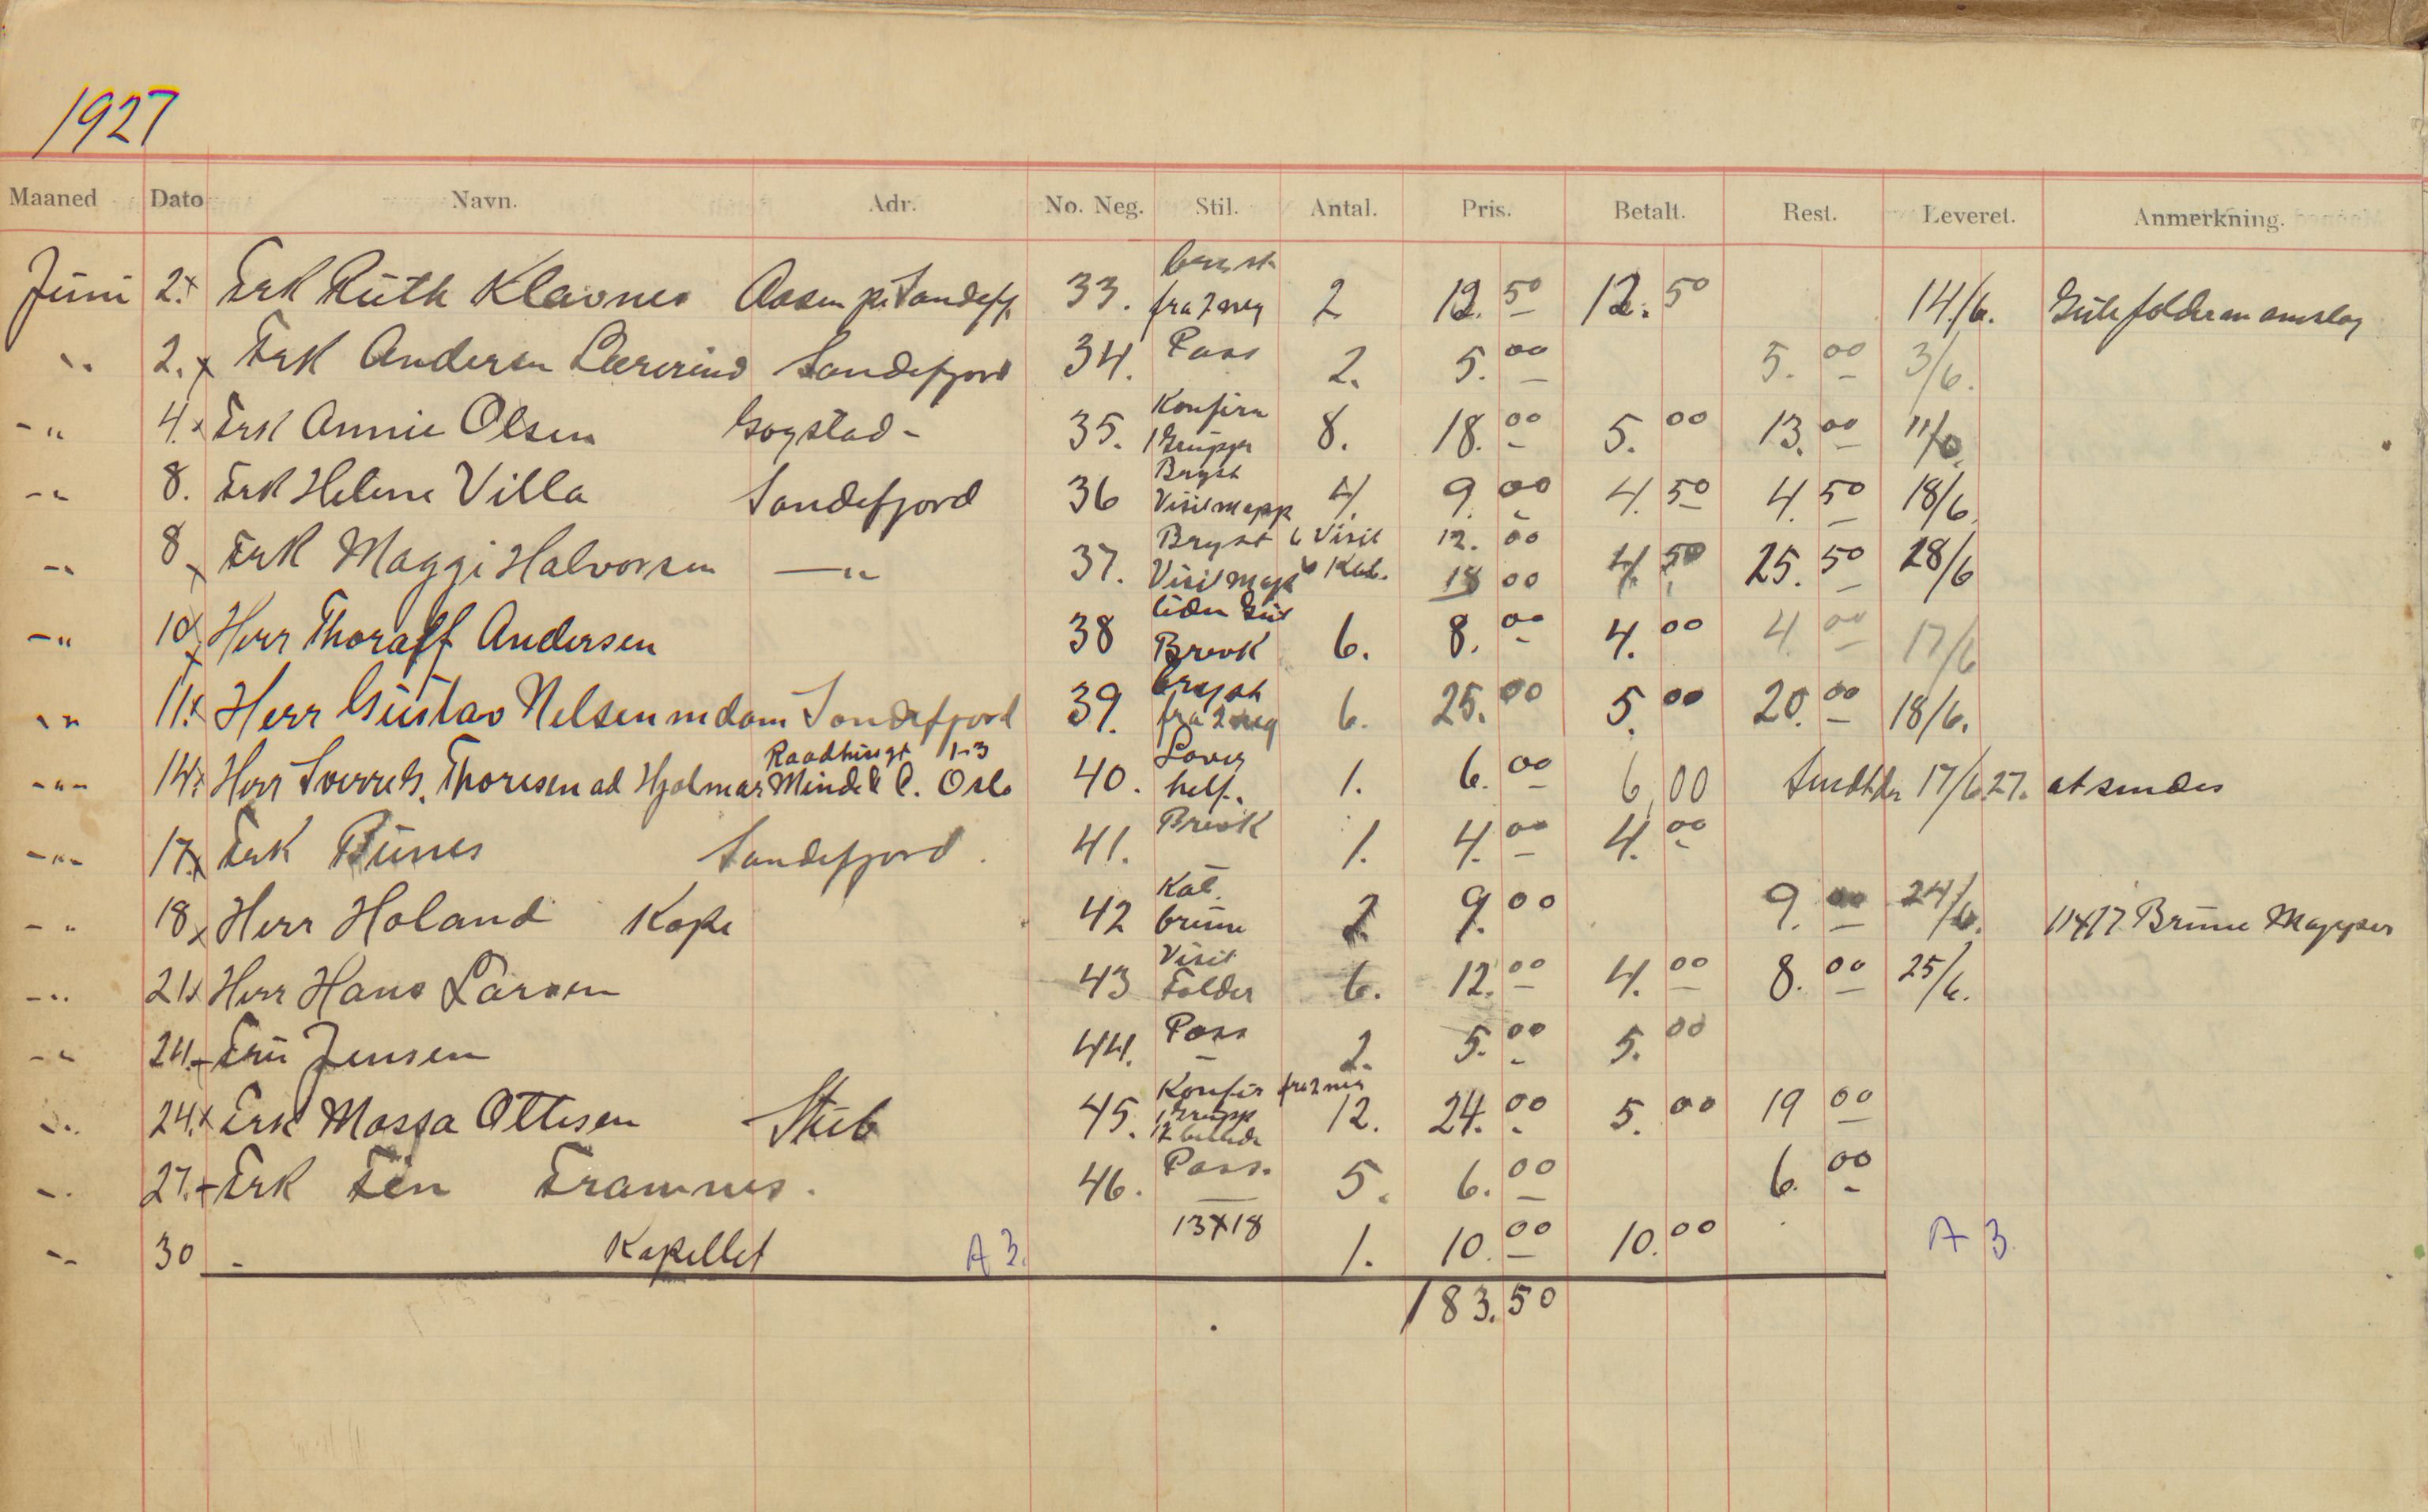 1927
Maaned Dato Navn. Adr. No. Neg. Stil. Antal. Pris. Betalt. Rest. Leveret. Anmerkning.
Juni 2. x Frk Ruth Klavnes Aasen pr. Sandefj. 33. bryst fra 2 neg 2 12.50 12.50 14/6.
-"- 2. x Frk Andersen Lærerind Sandefjord 34. Pass 2. 5.00 5.00 3/6.
-"- 4. x Frk Annie Olsen Gogstad - 35. Konfirm 1 Gruppe 8. 18.00 5.00 13.00 11/6
-"- 8. Frk Helene Villa Sandefjord 36 Bryst Visitmapp 4. 9.00 4.50 4.50 18/6
-"- 8 x Frk Maggi Halvorsen -"- 37. Bryst Visitmapp 6 Visit 6 Kab. 12.00 18 00 4.50 25.50 28/6
-"- 10 x Herr Thoralf Andersen 38 Brevk 6. 8.00 4.00 4.00 17/6
-"- 11. x Herr Gustav Nelsen m dam Sandefjord 39. bryst fra 2 neg 6. 25.00 5.00 20.00 18/6.
-"- 14. x Herr Sverre G. Thoresen ad Hjalmar Minde & C. Raadhusgt 1-3 Oslo 40. helf. 1. 6.00 6,00 Sendt den 17/6.27. at sendes
-"- 17. x Frk Bunes Sandefjord. 41. Brevk 1. 4.00 4.00
-"- 18 x Herr Holand Kope 42 Kab. brune 2 9.00 9.00 24/6. 11x17 Brune Mapper
-"- 21 x Herr Hans Larsen 43 Visit Folder 6. 12.00 4.00 8.00 25/6.
-"- 24. - Fru Jensen 44. Pass - 2. 5.00 5.00
-"- 24. x Frk Massa Ottesen Stub 45. Konfir fra 2 neg 1 Grupp 12 billede 12. 24.00 5.00 19 00
-"- 27. - Frk Fen Framnes. 46. Pass. 5. 6.00 6.00
-"- 30 - Kapellet A 3. 13x18 1. 10.00 10.00 A 3.
183.50